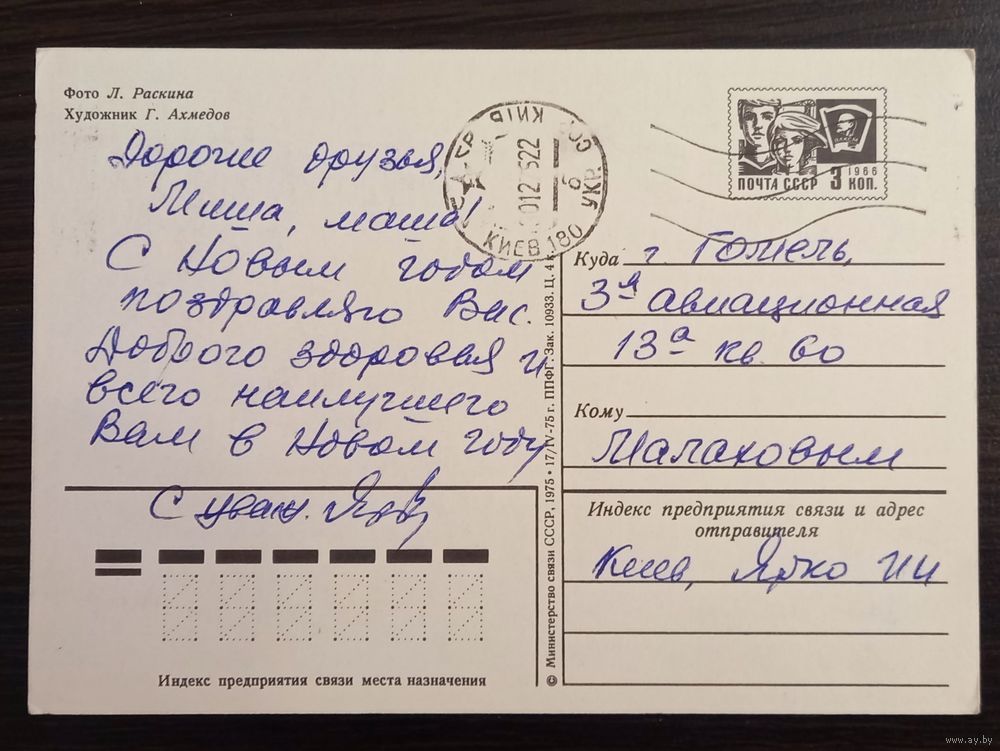 Фото Л. Раскина
Художник Г. Ахмедов
Дорогие друзья,
Миша, маша!
С Новым годом
поздравляю Вас.
Доброго здоровья и
всего наилучшего
Вам в Новом году
С уваж.
Индекс предприятия связи места назначения
КИЇВ
УКР
КИЕВ 180
ПОЧТА СССР 3 КОП.
1966
© Министерство связи СССР, 1975 • 17/IV-75 г. ППФГ. Зак. 10933. Ц. 4 к.
Куда г. Гомель,
3я авиационная
13а кв. 60
Кому
Малаховым
Индекс предприятия связи и адрес
отправителя
Киев, Ярко ИИ
www.ay.by